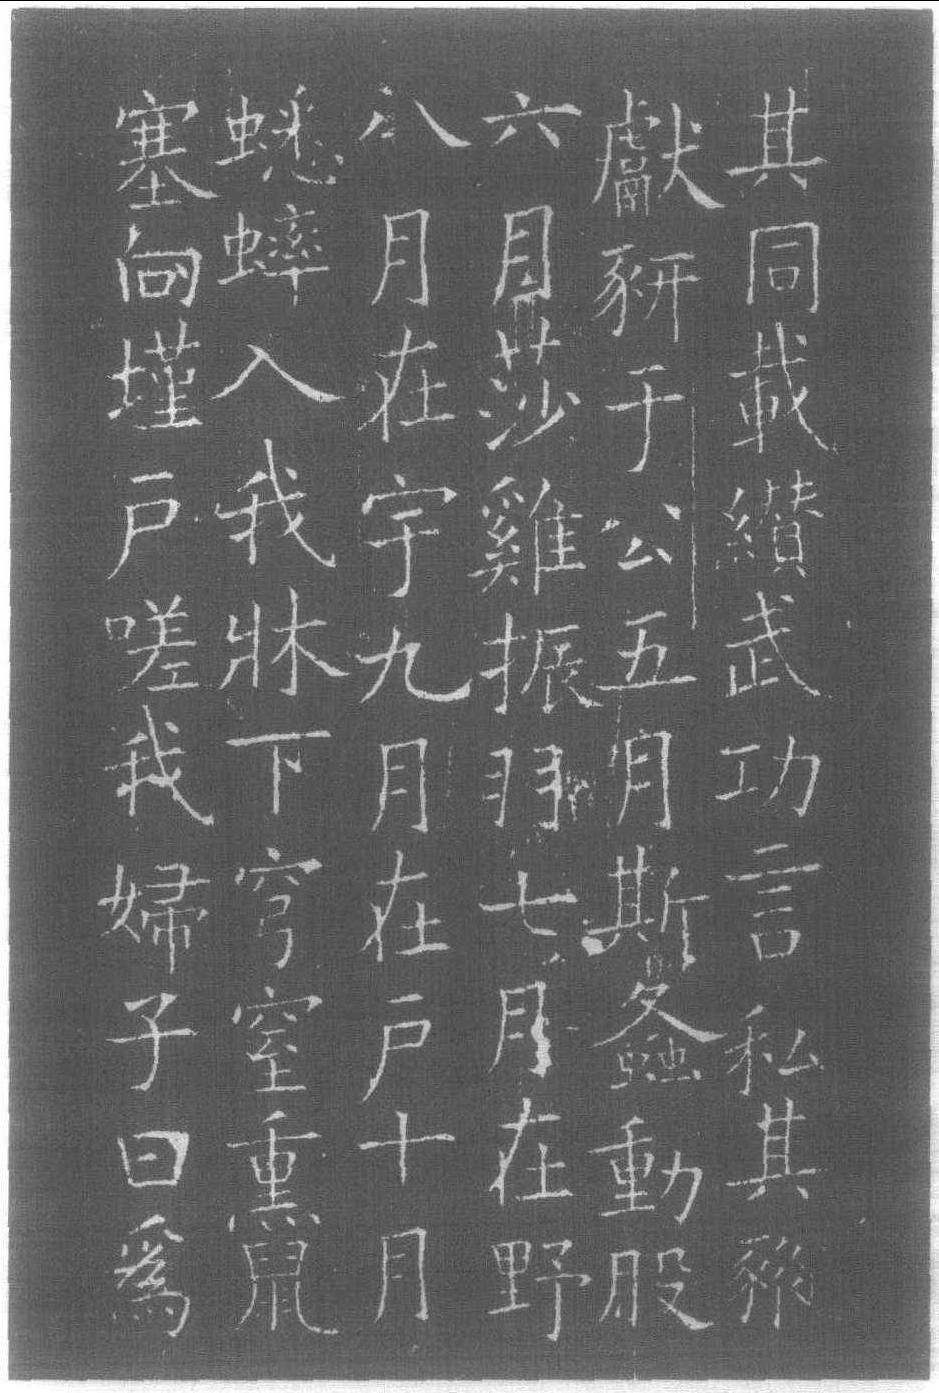 其同載纘武功言私其豵
獻豜于公五月斯螽動股
六月莎雞振羽七月在野
八月在宇九月在戶十月
蟋蟀入我牀下穹窒熏鼠
塞向墐戶嗟我婦子曰爲